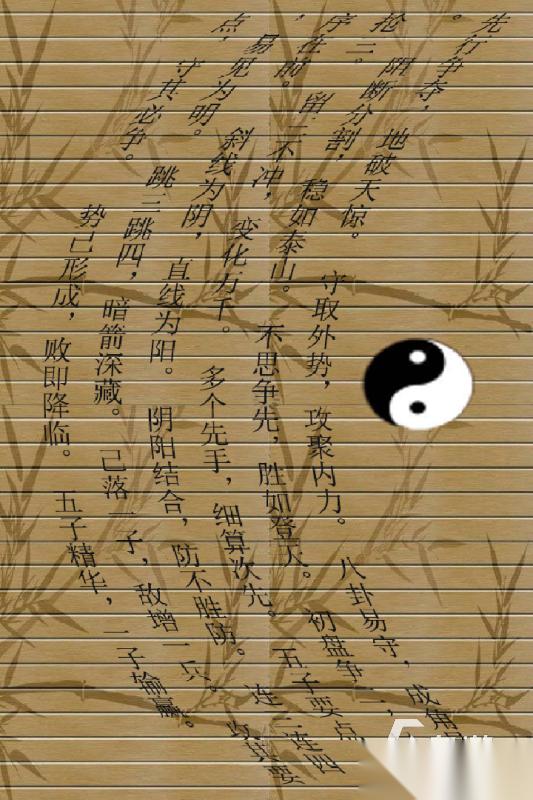 先行争夺，地破天惊。守取外势，攻聚内力。八卦易守，成角
。阳断分割，稳如泰山。不思争先，胜如登天。初盘争二，
抢三。留三不冲，变化万千。多个先手，细算次先。五子要点
序在前。斜线为阴，直线为阳。阴阳结合，防不胜防。连三连四
易见为明。跳三跳四，暗箭深藏。己落一子，敌增一兵。攻其要
点，守其必争。势已形成，败即降临。五子精华，一子输赢。